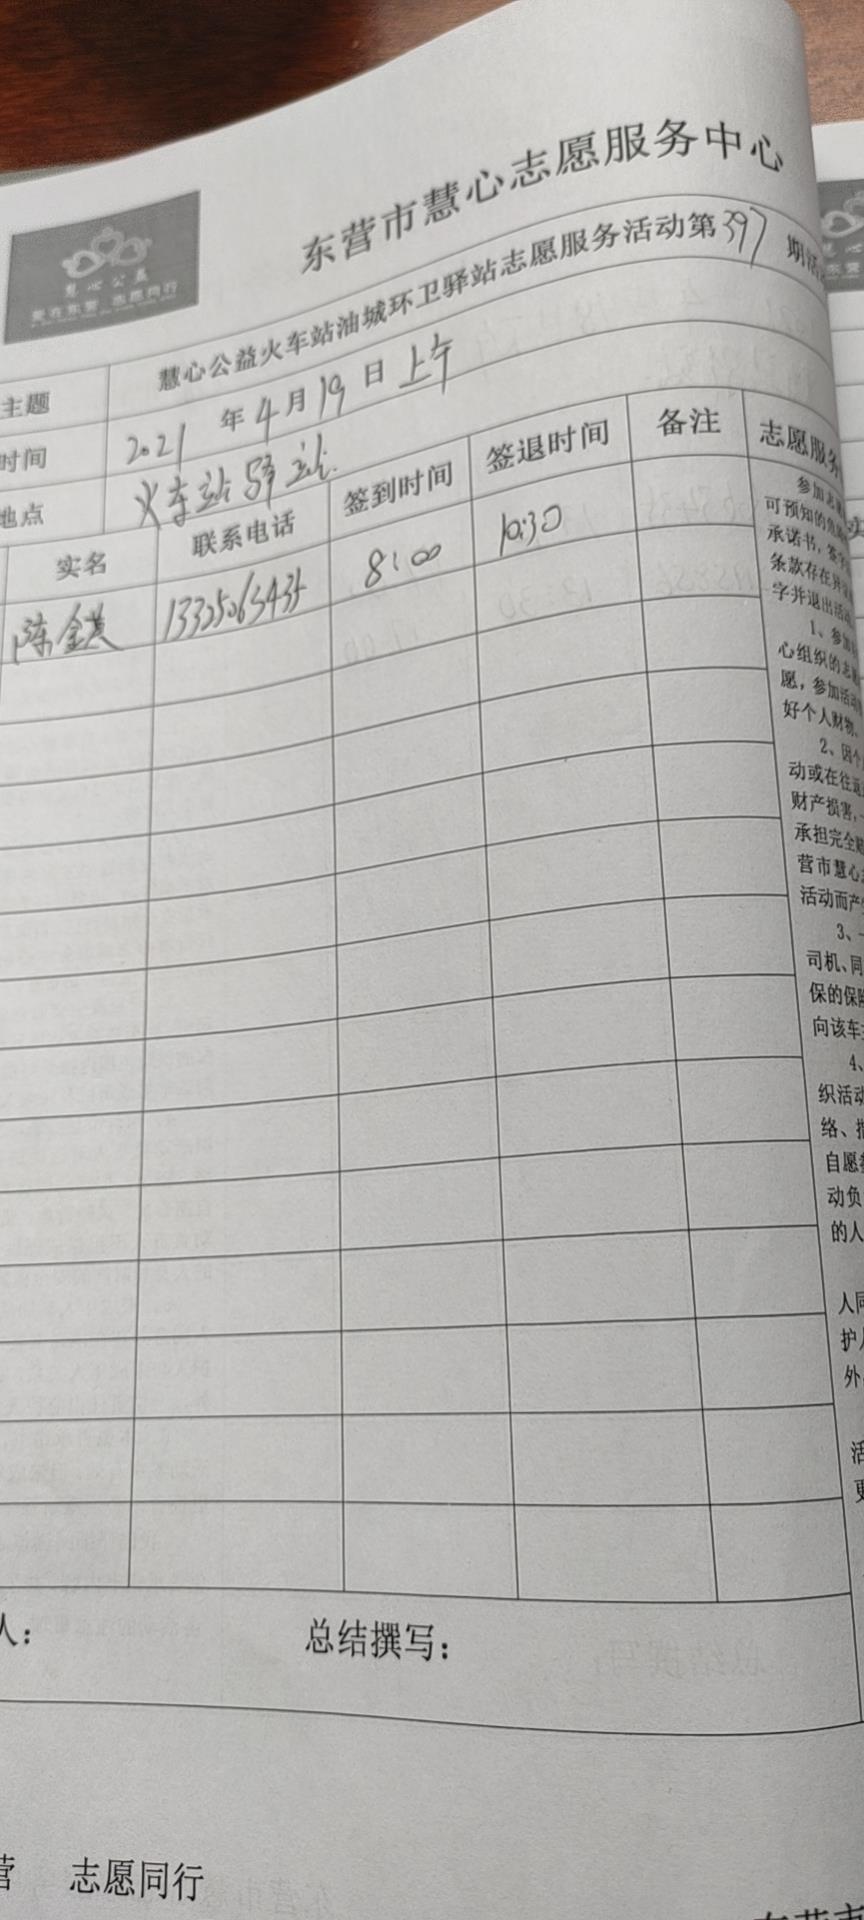 东营市慧心志愿服务中心
慧心公益
爱在东营 志愿同行
主题 慧心公益火车站油城环卫驿站志愿服务活动第397期活
时间 2021年4月19日上午
地点 火车站驿站.
实名 联系电话 签到时间 签退时间 备注 志愿服务
陈金 8:00 10:30
参加志愿
可预知的危
承诺书,签字
条款存在异
字并退出活动
1、参加
心组织的志愿
愿,参加活动
好个人财物、
2、因个
动或在往返
财产损害,
承担完全赔
营市慧心
活动而产
3、
司机、同
保的保险
向该车
4、
织活动
络、指
自愿
动负
的人
人同
护
外
活
更
人: 总结撰写:
营 志愿同行
东营市